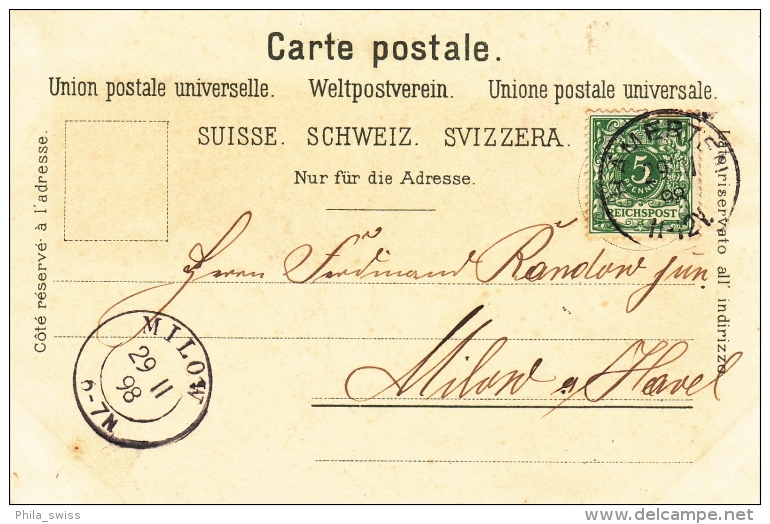 Carte postale.
Union postale universelle. Weltpostverein. Unione postale universale.
SUISSE. SCHWEIZ. SVIZZERA.
Nur für die Adresse.
Côté réservé à l'adresse.
Lato riservato all' indirizzo.
5
PFENNIG
REICHSPOST
29
98
11-12V.
Herrn Ferdinand Randow jun
Milow a/Havel
MILOW
29 11
98
6-7N
Phila_swiss
delcampe.net